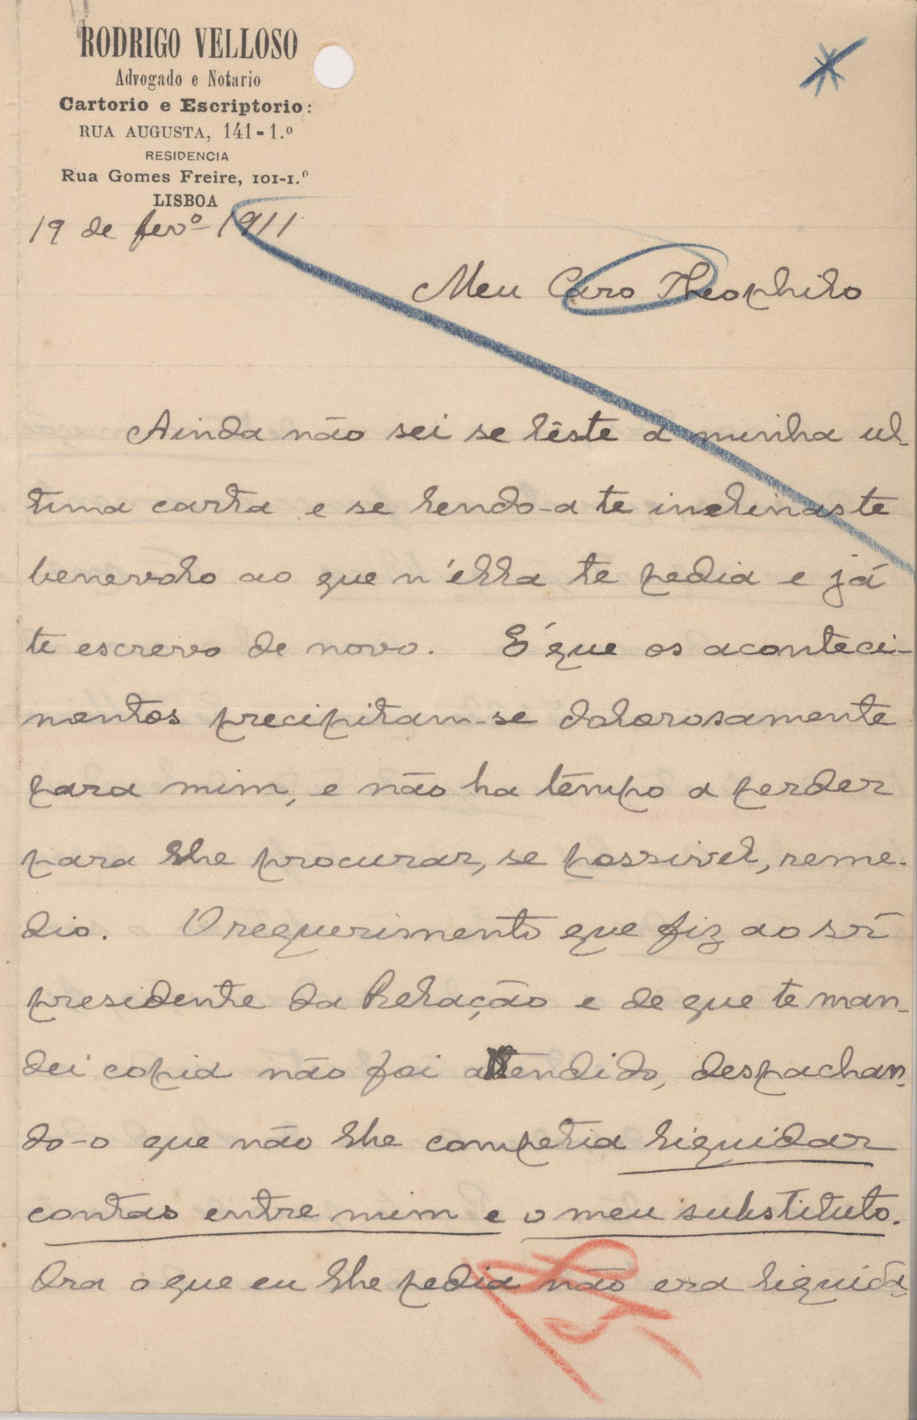 RODRIGO VELLOSO
Advogado e Notario
Cartorio e Escriptorio:
RUA AUGUSTA, 141-1.º
RESIDENCIA
Rua Gomes Freire, 101-1.º
LISBOA
19 de fevº 1911
Meu Caro Theophilo
Ainda não sei se lêste a minha ul-
tima carta e se lendo-a te inclinaste
benevolo ao que n'ella te pedia e já
te escrevo de novo. E' que os aconteci-
mentos precipitam-se dolorosamente
para mim, e não ha tempo a perder
para lhe procurar, se possivel, reme-
dio. O requerimento que fiz ao sr.
presidente da Relação e de que te man-
dei copia não foi attendido, despachan-
do-o que não lhe competia liquidar
contas entre mim e o meu substituto.
Ora o que eu lhe pedia não era liquida-